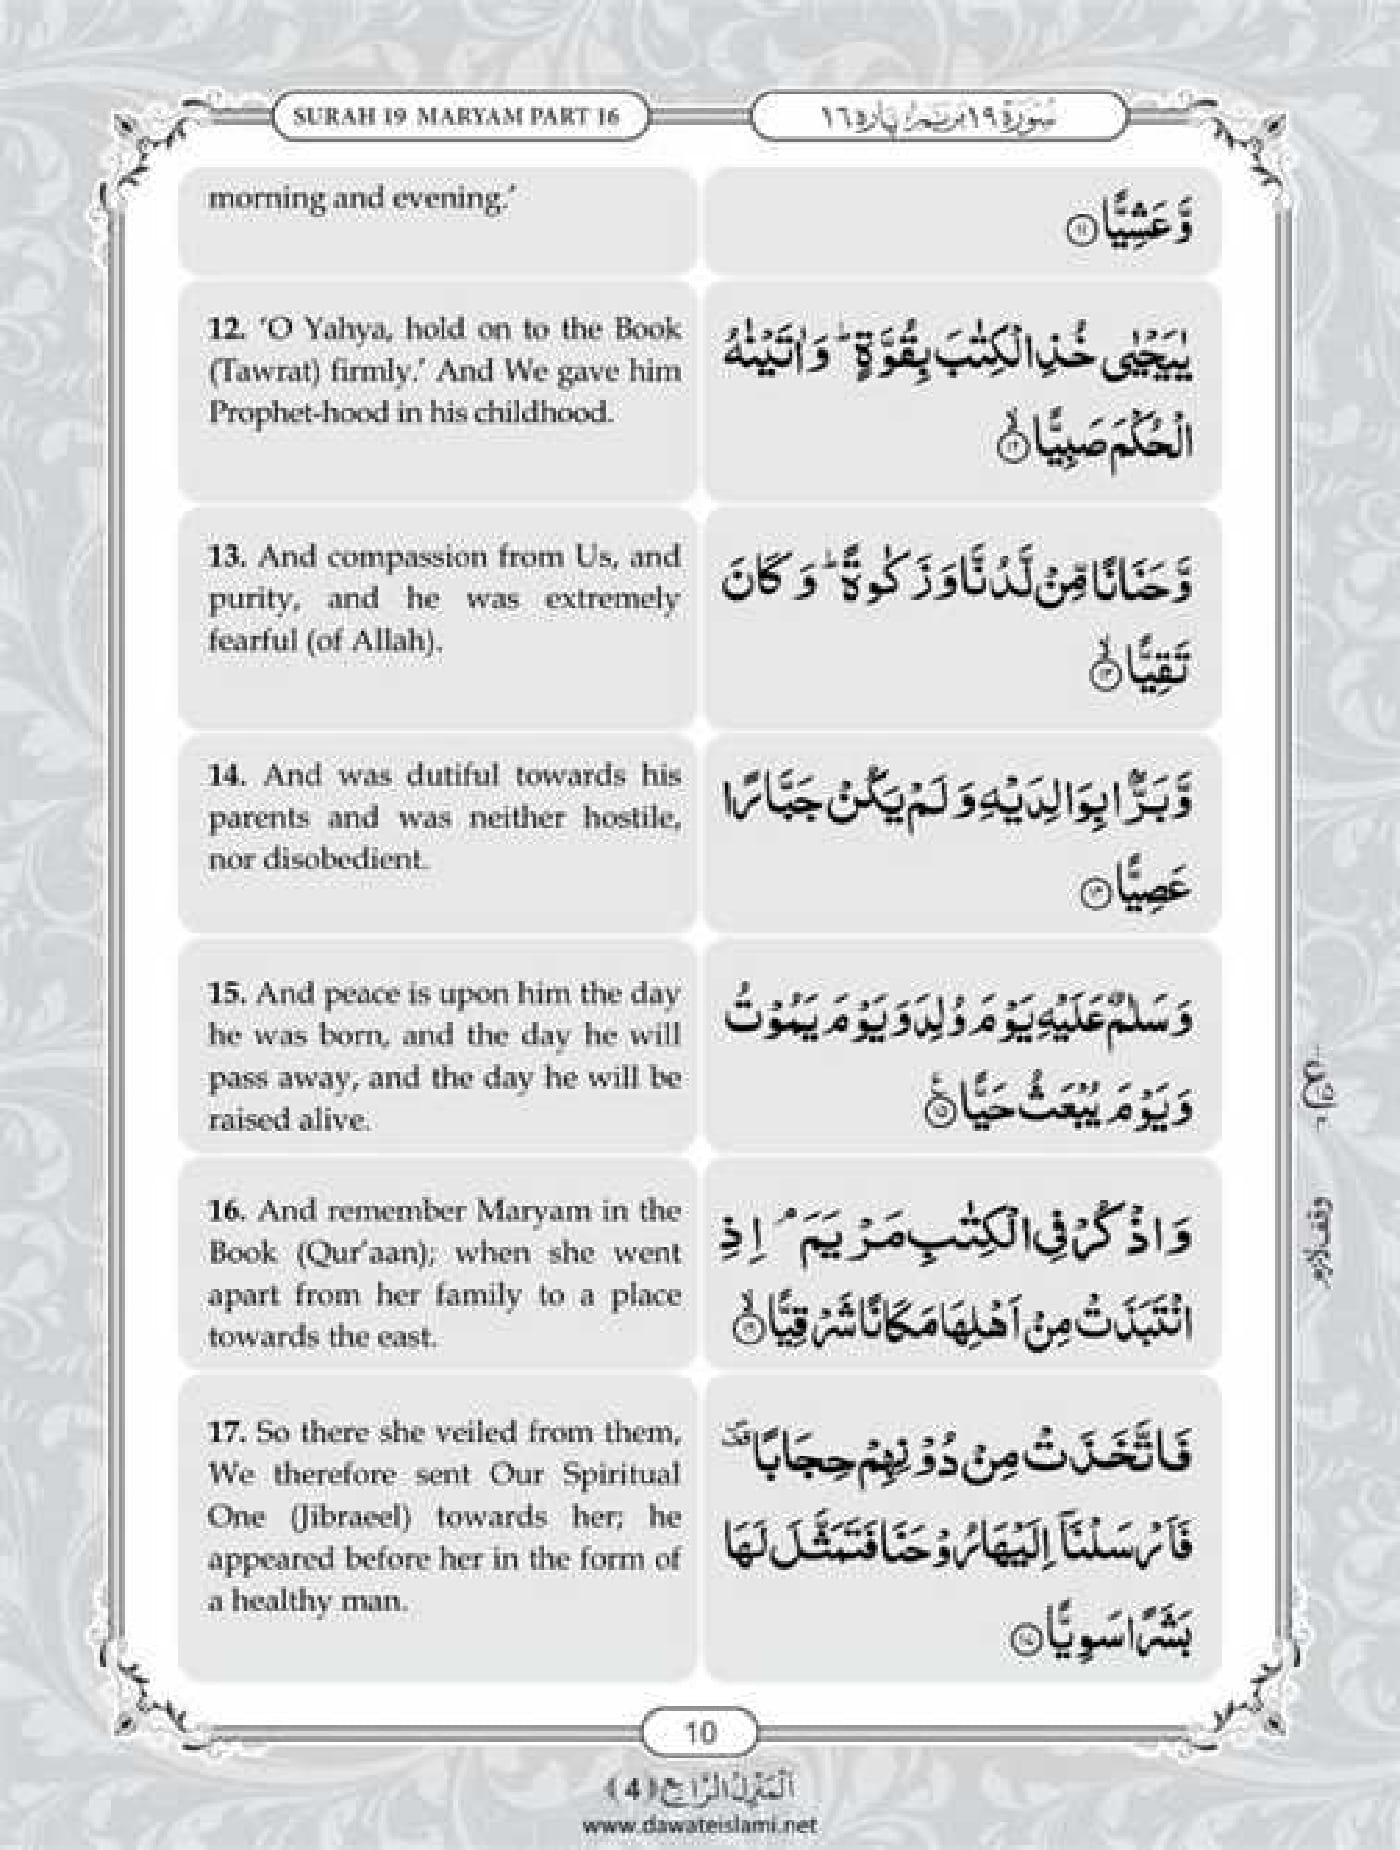 SURAH 19 MARYAM PART 16
سُوْرَة ١٩ مَرْيَم، پاره ١٦
morning and evening.’
وَّعَشِيًّا ۝۱۱
12. ‘O Yahya, hold on to the Book
(Tawrat) firmly.’ And We gave him
Prophet-hood in his childhood.
يٰيَحْيٰى خُذِ الْكِتٰبَ بِقُوَّةٍ ؕ وَاٰتَيْنٰهُ
الْحُكْمَ صَبِيًّا ۝۱۲ۙ
13. And compassion from Us, and
purity, and he was extremely
fearful (of Allah).
وَّحَنَانًا مِّنْ لَّدُنَّا وَزَكٰوةً ؕ وَكَانَ
تَقِيًّا ۝۱۳ۙ
14. And was dutiful towards his
parents and was neither hostile,
nor disobedient.
وَّبَرًّۢا بِوَالِدَيْهِ وَلَمْ يَكُنْ جَبَّارًا
عَصِيًّا ۝۱۴
15. And peace is upon him the day
he was born, and the day he will
pass away, and the day he will be
raised alive.
وَسَلٰمٌ عَلَيْهِ يَوْمَ وُلِدَ وَيَوْمَ يَمُوْتُ
وَيَوْمَ يُبْعَثُ حَيًّا ۝۱۵
16. And remember Maryam in the
Book (Qur’aan); when she went
apart from her family to a place
towards the east.
وَاذْكُرْ فِى الْكِتٰبِ مَرْيَمَ ۘ اِذِ
انْتَبَذَتْ مِنْ اَهْلِهَا مَكَانًا شَرْقِيًّا ۝۱۶ۙ
17. So there she veiled from them,
We therefore sent Our Spiritual
One (Jibraeel) towards her; he
appeared before her in the form of
a healthy man.
فَاتَّخَذَتْ مِنْ دُوْنِهِمْ حِجَابًا ۪
فَاَرْسَلْنَاۤ اِلَيْهَا رُوْحَنَا فَتَمَثَّلَ لَهَا
بَشَرًا سَوِيًّا ۝۱۷
وقف لازم
10
اَلْمَنْزِلُ الرَّابِع (4)
www.dawateislami.net